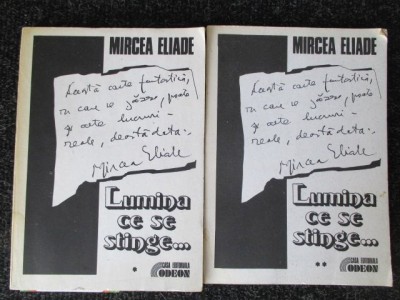 MIRCEA ELIADE
carte fantastică,
cu care se
și alte lucruri -
reale, deastădată..
Mircea Eliade
Lumina
ce se
stinge...
*
CASA EDITORIALA
ODEON
MIRCEA ELIADE
carte fantastică,
cu care se
și alte lucruri -
reale, deastădată..
Mircea Eliade
Lumina
ce se
stinge...
**
CASA EDITORIALA
ODEON